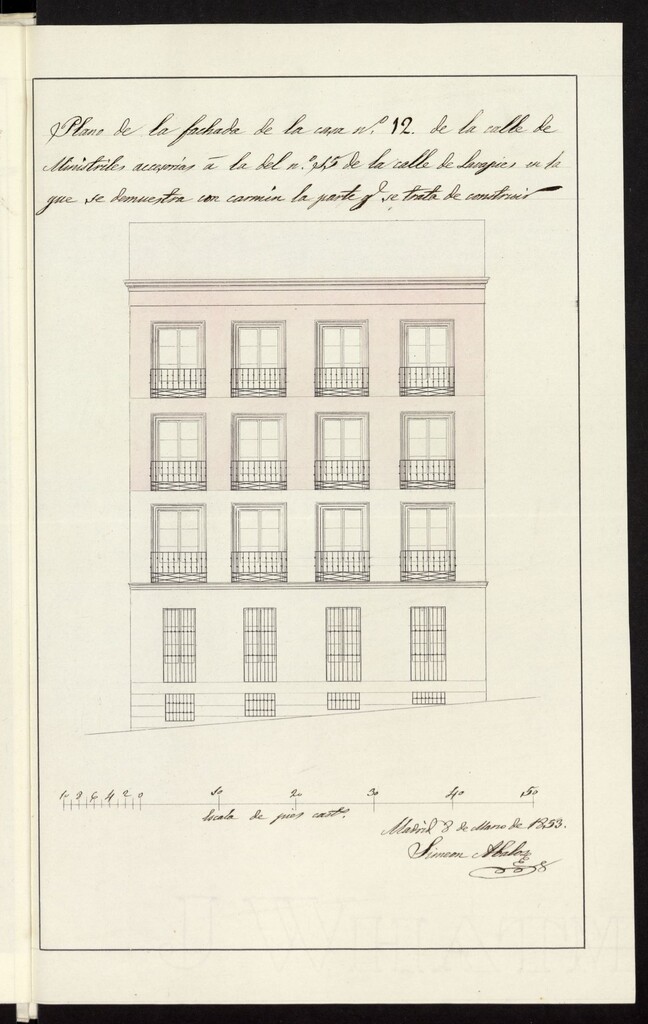 Plano de la fachada de la casa n.º 12. de la calle de
Ministriles accesorias á la del n.º 15 de la calle de Lavapies en la
que se demuestra con carmin la parte q.e se trata de construir
10 8 6 4 2 0 10 20 30 40 50
Escala de pies cast.s
Madrid 8 de Marzo de 1853.
Simeon Abalos